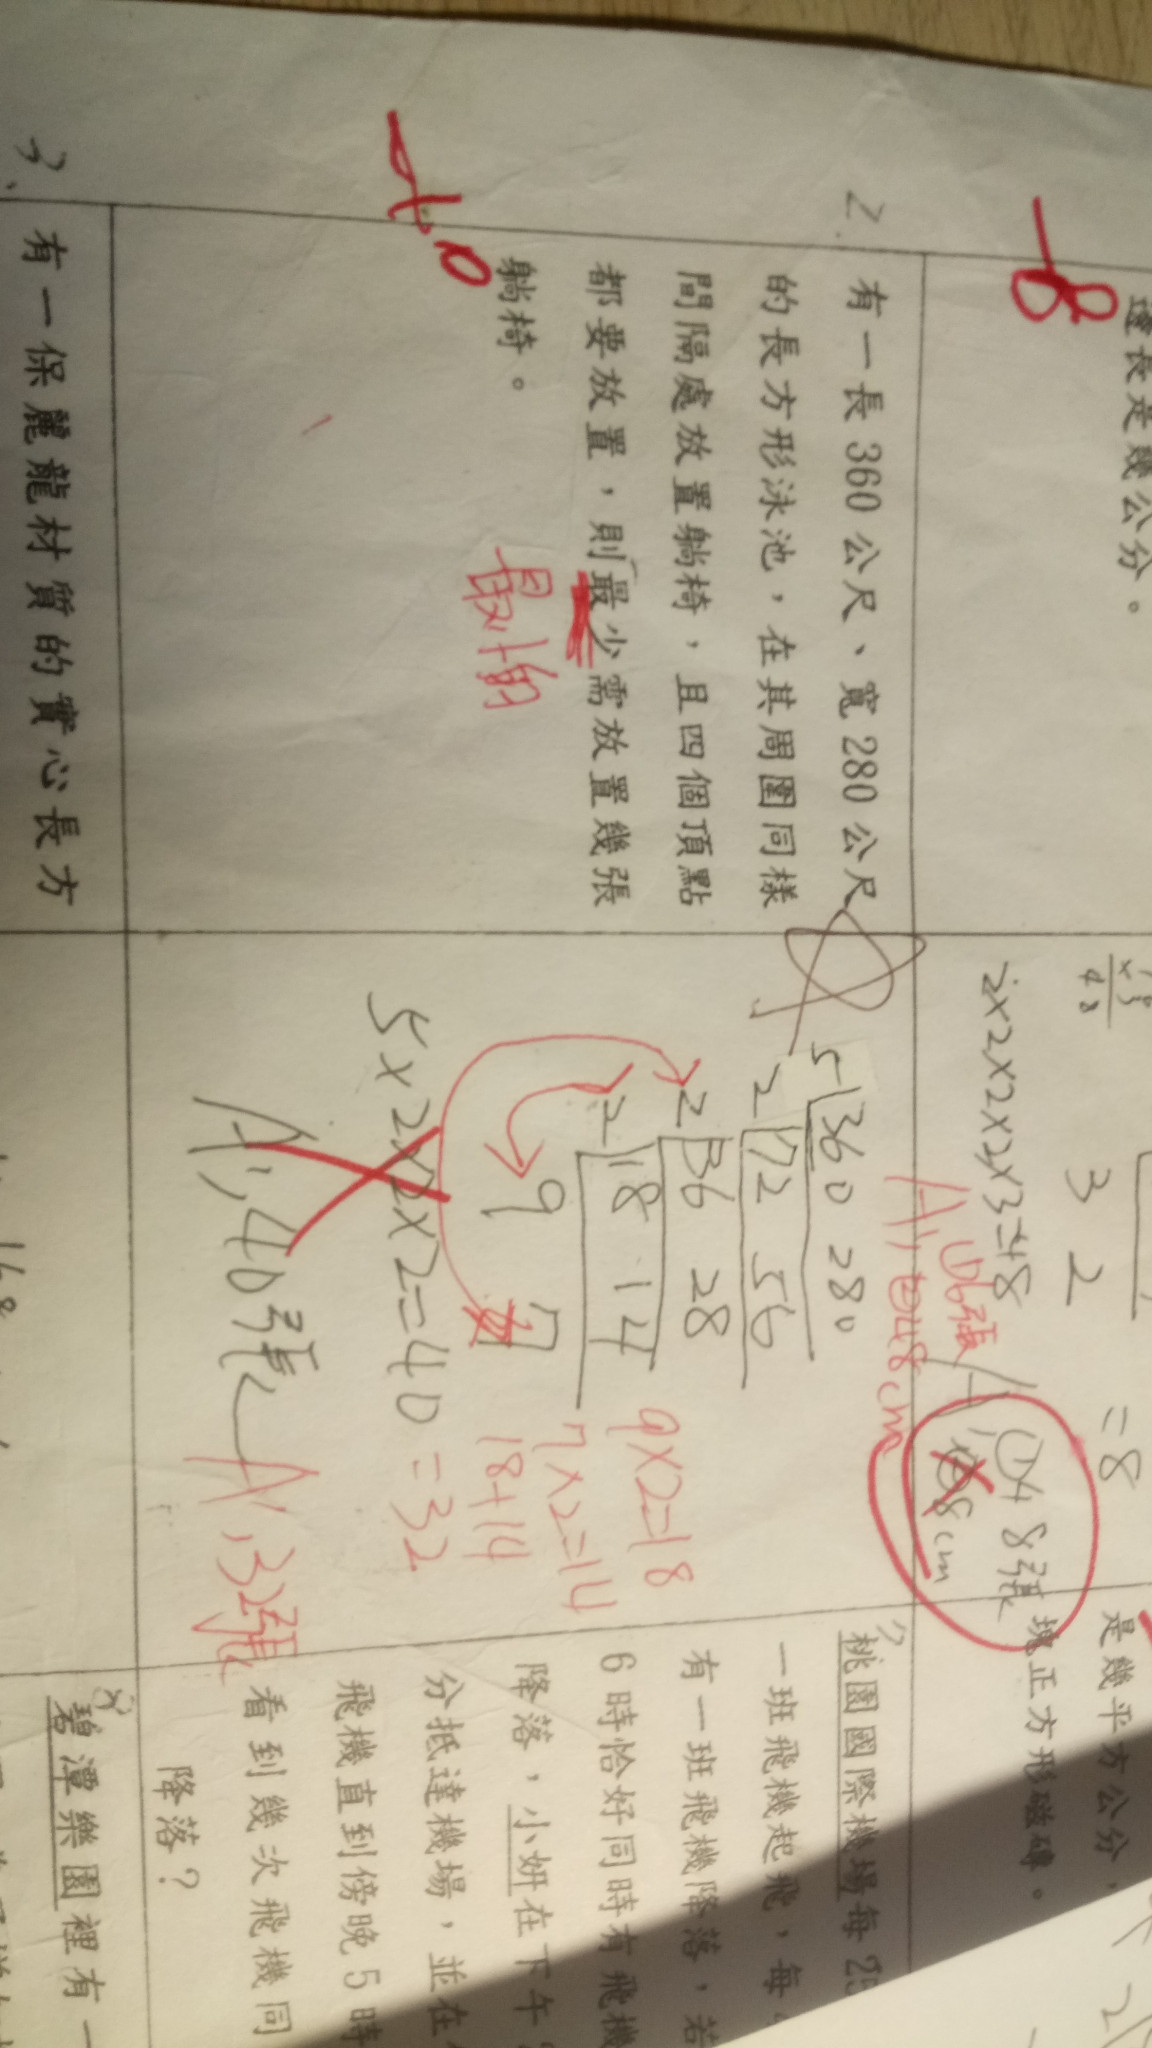 邊長是幾公分。
-8
2.
有一長360公尺、寬280公尺
的長方形泳池，在其周圍同樣
間隔處放置躺椅，且四個頂點
都要放置，則最少需放置幾張
躺椅。
3、
有一保麗龍材質的實心長方
3 2
=8
2×2×2×2×3=48
A,①6張
②48cm
①48張
8cm
5 360 280
2 72 56
2 36 28
2 18 14
9 7
5×2×2×2=40
=32
9×2=18
7×2=14
18+14
A,40張
A,32張
是幾平方公分，
塊正方形磁磚。
7
桃園國際機場每25
一班飛機起飛，每
有一班飛機降落，若
6時恰好同時有飛機
降落，小妍在下午
分抵達機場，並在
飛機直到傍晚5時
看到幾次飛機同
降落？
碧潭樂園裡有一